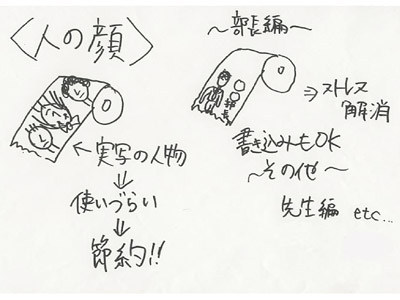 〈人の顔〉
←実写の人物
⇓
使いづらい
⇓
節約!!
～部長編～
部長
⇒ストレス
解消
書き込みもOK
～その他～
先生編 etc...